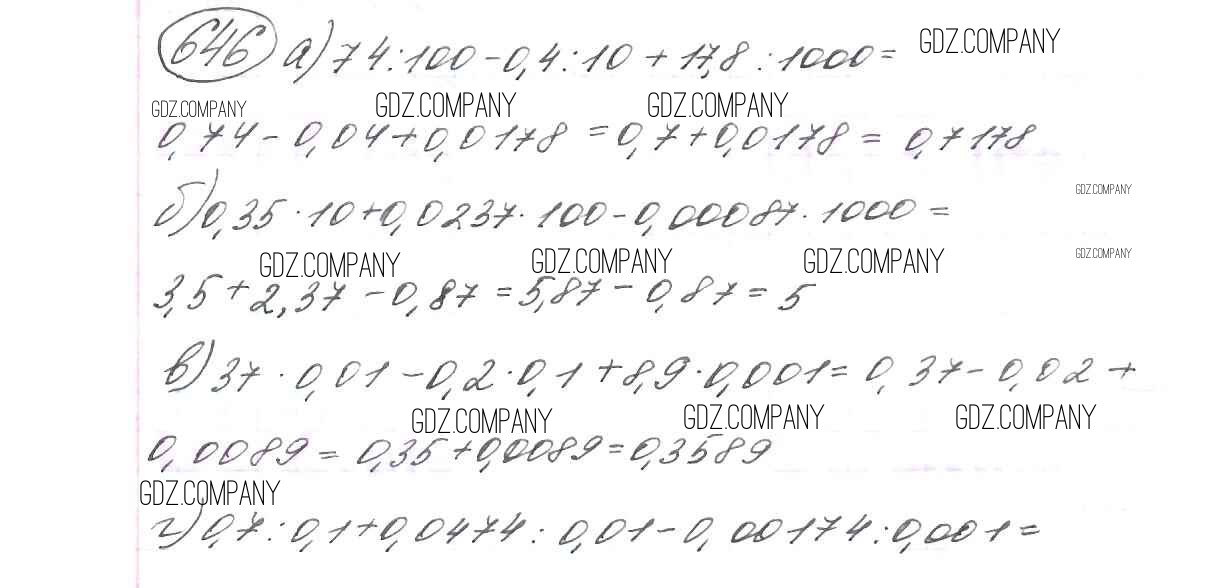 646 а) 74:100-0,4:10+17,8:1000= GDZ.COMPANY
GDZ.COMPANY GDZ.COMPANY GDZ.COMPANY
0,74-0,04+0,0178=0,7+0,0178=0,7178
GDZ.COMPANY
б) 0,35·10+0,0237·100-0,00087·1000=
GDZ.COMPANY GDZ.COMPANY GDZ.COMPANY GDZ.COMPANY
3,5+2,37-0,87=5,87-0,87=5
в) 37·0,01-0,2·0,1+8,9·0,001=0,37-0,02+
GDZ.COMPANY GDZ.COMPANY GDZ.COMPANY
0,0089=0,35+0,0089=0,3589
GDZ.COMPANY
г) 0,7:0,1+0,0474:0,01-0,00174:0,001=